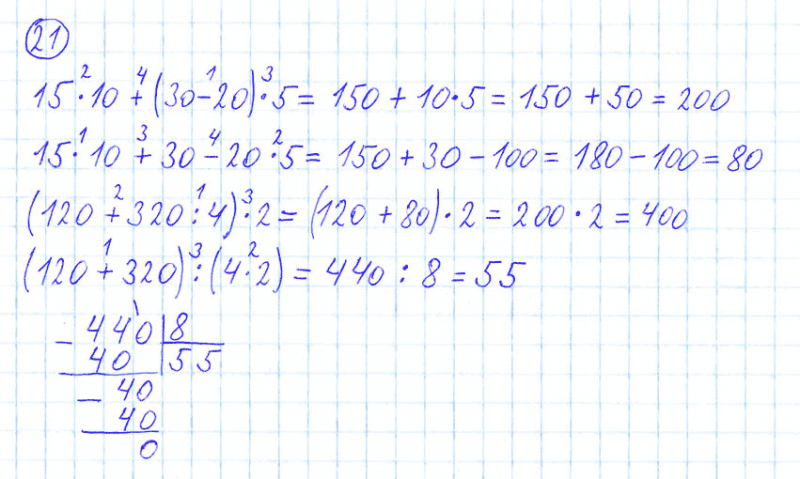 21
15 · 10 + (30 - 20) · 5 = 150 + 10 · 5 = 150 + 50 = 200
15 · 10 + 30 - 20 · 5 = 150 + 30 - 100 = 180 - 100 = 80
(120 + 320 : 4) · 2 = (120 + 80) · 2 = 200 · 2 = 400
(120 + 320) : (4 · 2) = 440 : 8 = 55
- 440 | 8
40 | 55
- 40
40
0